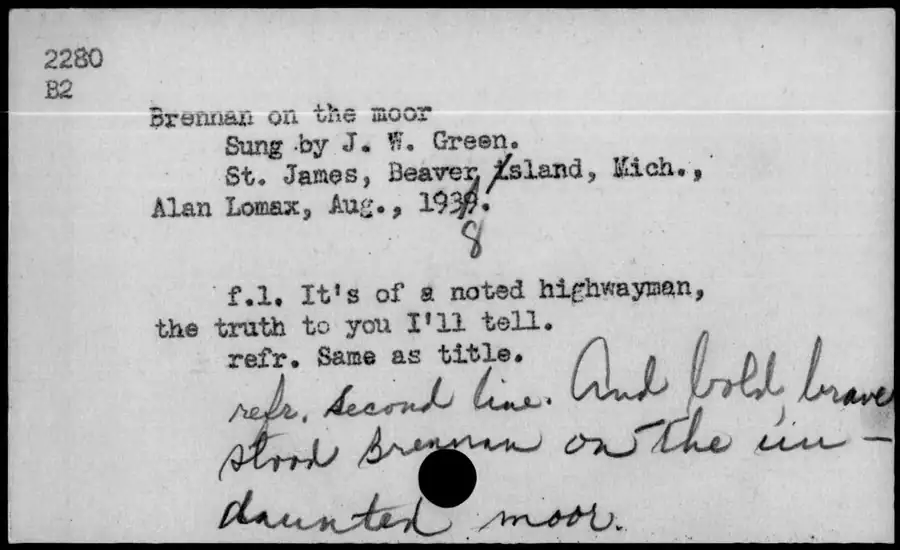 2280
B2
Brennan on the moor
Sung by J. W. Green.
St. James, Beaver Island, Mich.,
Alan Lomax, Aug., 1939.
8
f.l. It's of a noted highwayman,
the truth to you I'll tell.
refr. Same as title.
refr. second line. And bold, brave
stood Brennan on the un-
daunted moor.